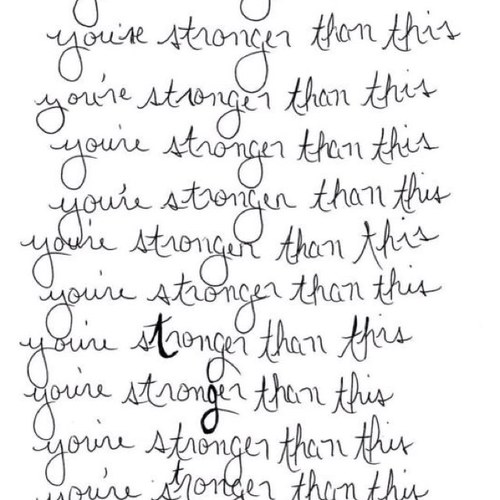 you're stronger than this
you're stronger than this
you're stronger than this
you're stronger than this
you're stronger than this
you're stronger than this
you're stronger than this
you're stronger than this
you're stronger than this
you're stronger than this